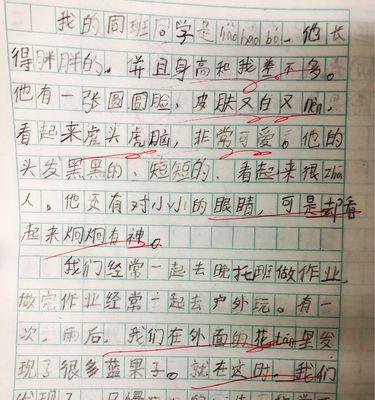 我的同班同学是liáo hao bó，他长
得胖胖的，并且身高和我差不多。
他有一张圆圆脸，皮肤又白又nèn，
看起来虎头虎脑，非常可爱。他的
头发黑黑的、短短的，看起来很zhā
人。他还有对小小的眼睛，可是却看
起来炯炯有神。
我们经常一起去晚托班做作业，
做完作业经常一起去户外玩。有一
次，雨后，我们在外面的花tán里发
现了很多蓝果子。就在这时，我们